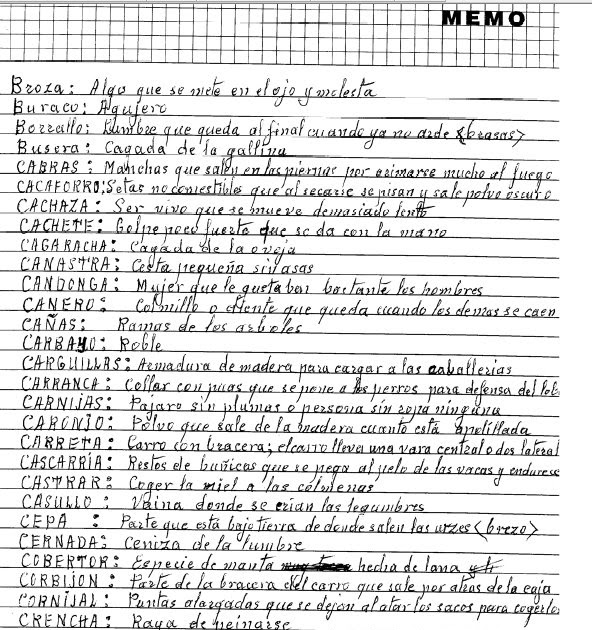 MEMO
Broza: Algo que se mete en el ojo y molesta
Buraco: Agujero
Borrallo: Lumbre que queda al final cuando ya no arde <brasas>
Busera: Cagada de la gallina
CABRAS: Manchas que salen en las piernas por arimarse mucho al fuego
CACAFORRO: Setas no comestibles que al secarse se pisan y sale polvo oscuro
CACHAZA: Ser vivo que se mueve demasiado lento
CACHETE: Golpe poco fuerte que se da con la mano
CAGARACHA: Cagada de la oveja
CANASTRA: Cesta pequeña sin asas
CANDONGA: Mujer que le gustaban bastante los hombres
CANERO: Colmillo o diente que queda cuando los demas se caen
CAÑAS: Ramas de los arboles
CARBAYO: Roble
CARGUILLAS: Armadura de madera para cargar a las caballerias
CARRANCA: Collar con puas que se pone a los perros para defensa del lob
CARNIJAS: Pajaro sin plumas o persona sin ropa ninguna
CARONJO: Polvo que sale de la madera cuanto está apolillada
CARRETA: Carro con bracera; el carro lleva una vara central o dos lateral
CASCARRIA: Restos de buñicas que se pega al pelo de las vacas y endurece
CASTRAR: Coger la miel a las colmenas
CASULLO: Vaina donde se crian las legumbres
CEPA: Parte que está bajo tierra de donde salen las urzes <brezo>
CERNADA: Ceniza de la lumbre
COBERTOR: Especie de manta hecha de lana
CORBIJON: Parte de la bracera del carro que sale por atras de la caja
CORNIJAL: Puntas alargadas que se dejan al atar los sacos para cogerlo
CRENCHA: Raya de peinarse